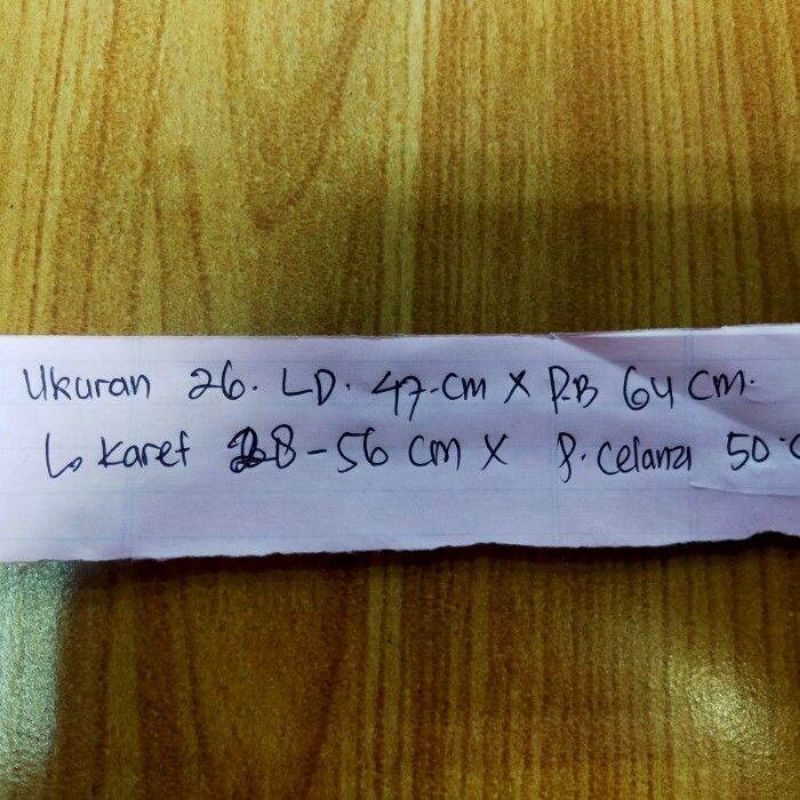 Ukuran 26. LD. 47-cm X P.B 64 cm.
↳ Karet 28-56 cm X P. celana 50 c